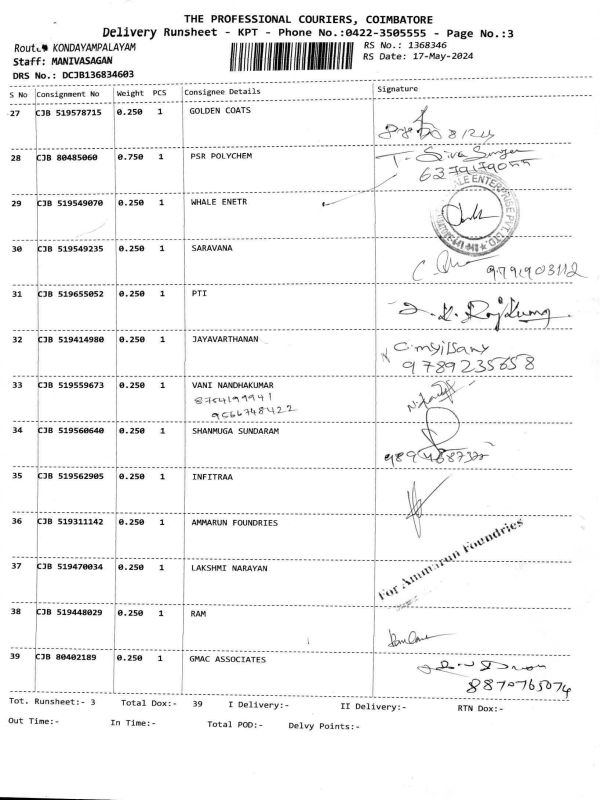 THE PROFESSIONAL COURIERS, COIMBATORE
Delivery Runsheet - KPT - Phone No.:0422-3505555 - Page No.:3
Route KONDAYAMPALAYAM
RS No.: 1368346
Staff: MANIVASAGAN
RS Date: 17-May-2024
DRS No.: DCJB136834603
S No Consignment No Weight PCS Consignee Details Signature
27 CJB 519578715 0.250 1 GOLDEN COATS
28 CJB 80485060 0.750 1 PSR POLYCHEM
T. Siva
6379179055
29 CJB 519549070 0.250 1 WHALE ENETR
30 CJB 519549235 0.250 1 SARAVANA
9791903112
31 CJB 519655052 0.250 1 PTI
K. Rajkumar
32 CJB 519414980 0.250 1 JAYAVARTHANAN
9789235658
33 CJB 519559673 0.250 1 VANI NANDHAKUMAR
8754199941
9566748422
34 CJB 519560640 0.250 1 SHANMUGA SUNDARAM
35 CJB 519562905 0.250 1 INFITRAA
36 CJB 519311142 0.250 1 AMMARUN FOUNDRIES
For Ammarun Foundries
37 CJB 519470034 0.250 1 LAKSHMI NARAYAN
38 CJB 519448029 0.250 1 RAM
39 CJB 80402189 0.250 1 GMAC ASSOCIATES
8870765074
Tot. Runsheet:- 3 Total Dox:- 39 I Delivery:- II Delivery:- RTN Dox:-
Out Time:- In Time:- Total POD:- Delvy Points:-